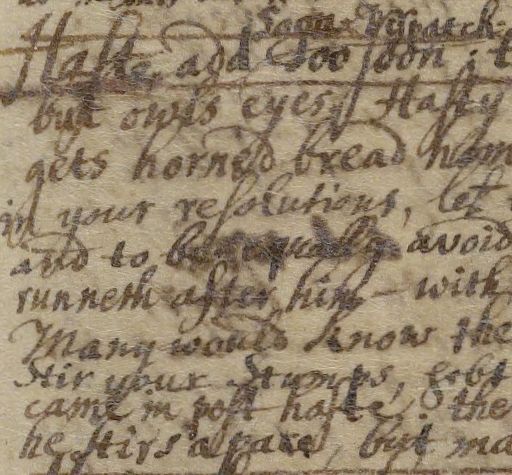 Soon. Dispatch.
Haste, add Too soon: t
but owls eyes, Hasty
gets horned bread
in your resolutions, let
and to be equally avoid
runneth after him — with
Many would know the
Stir your Stumps,
came in post haste: the
he stirs apace, but ma